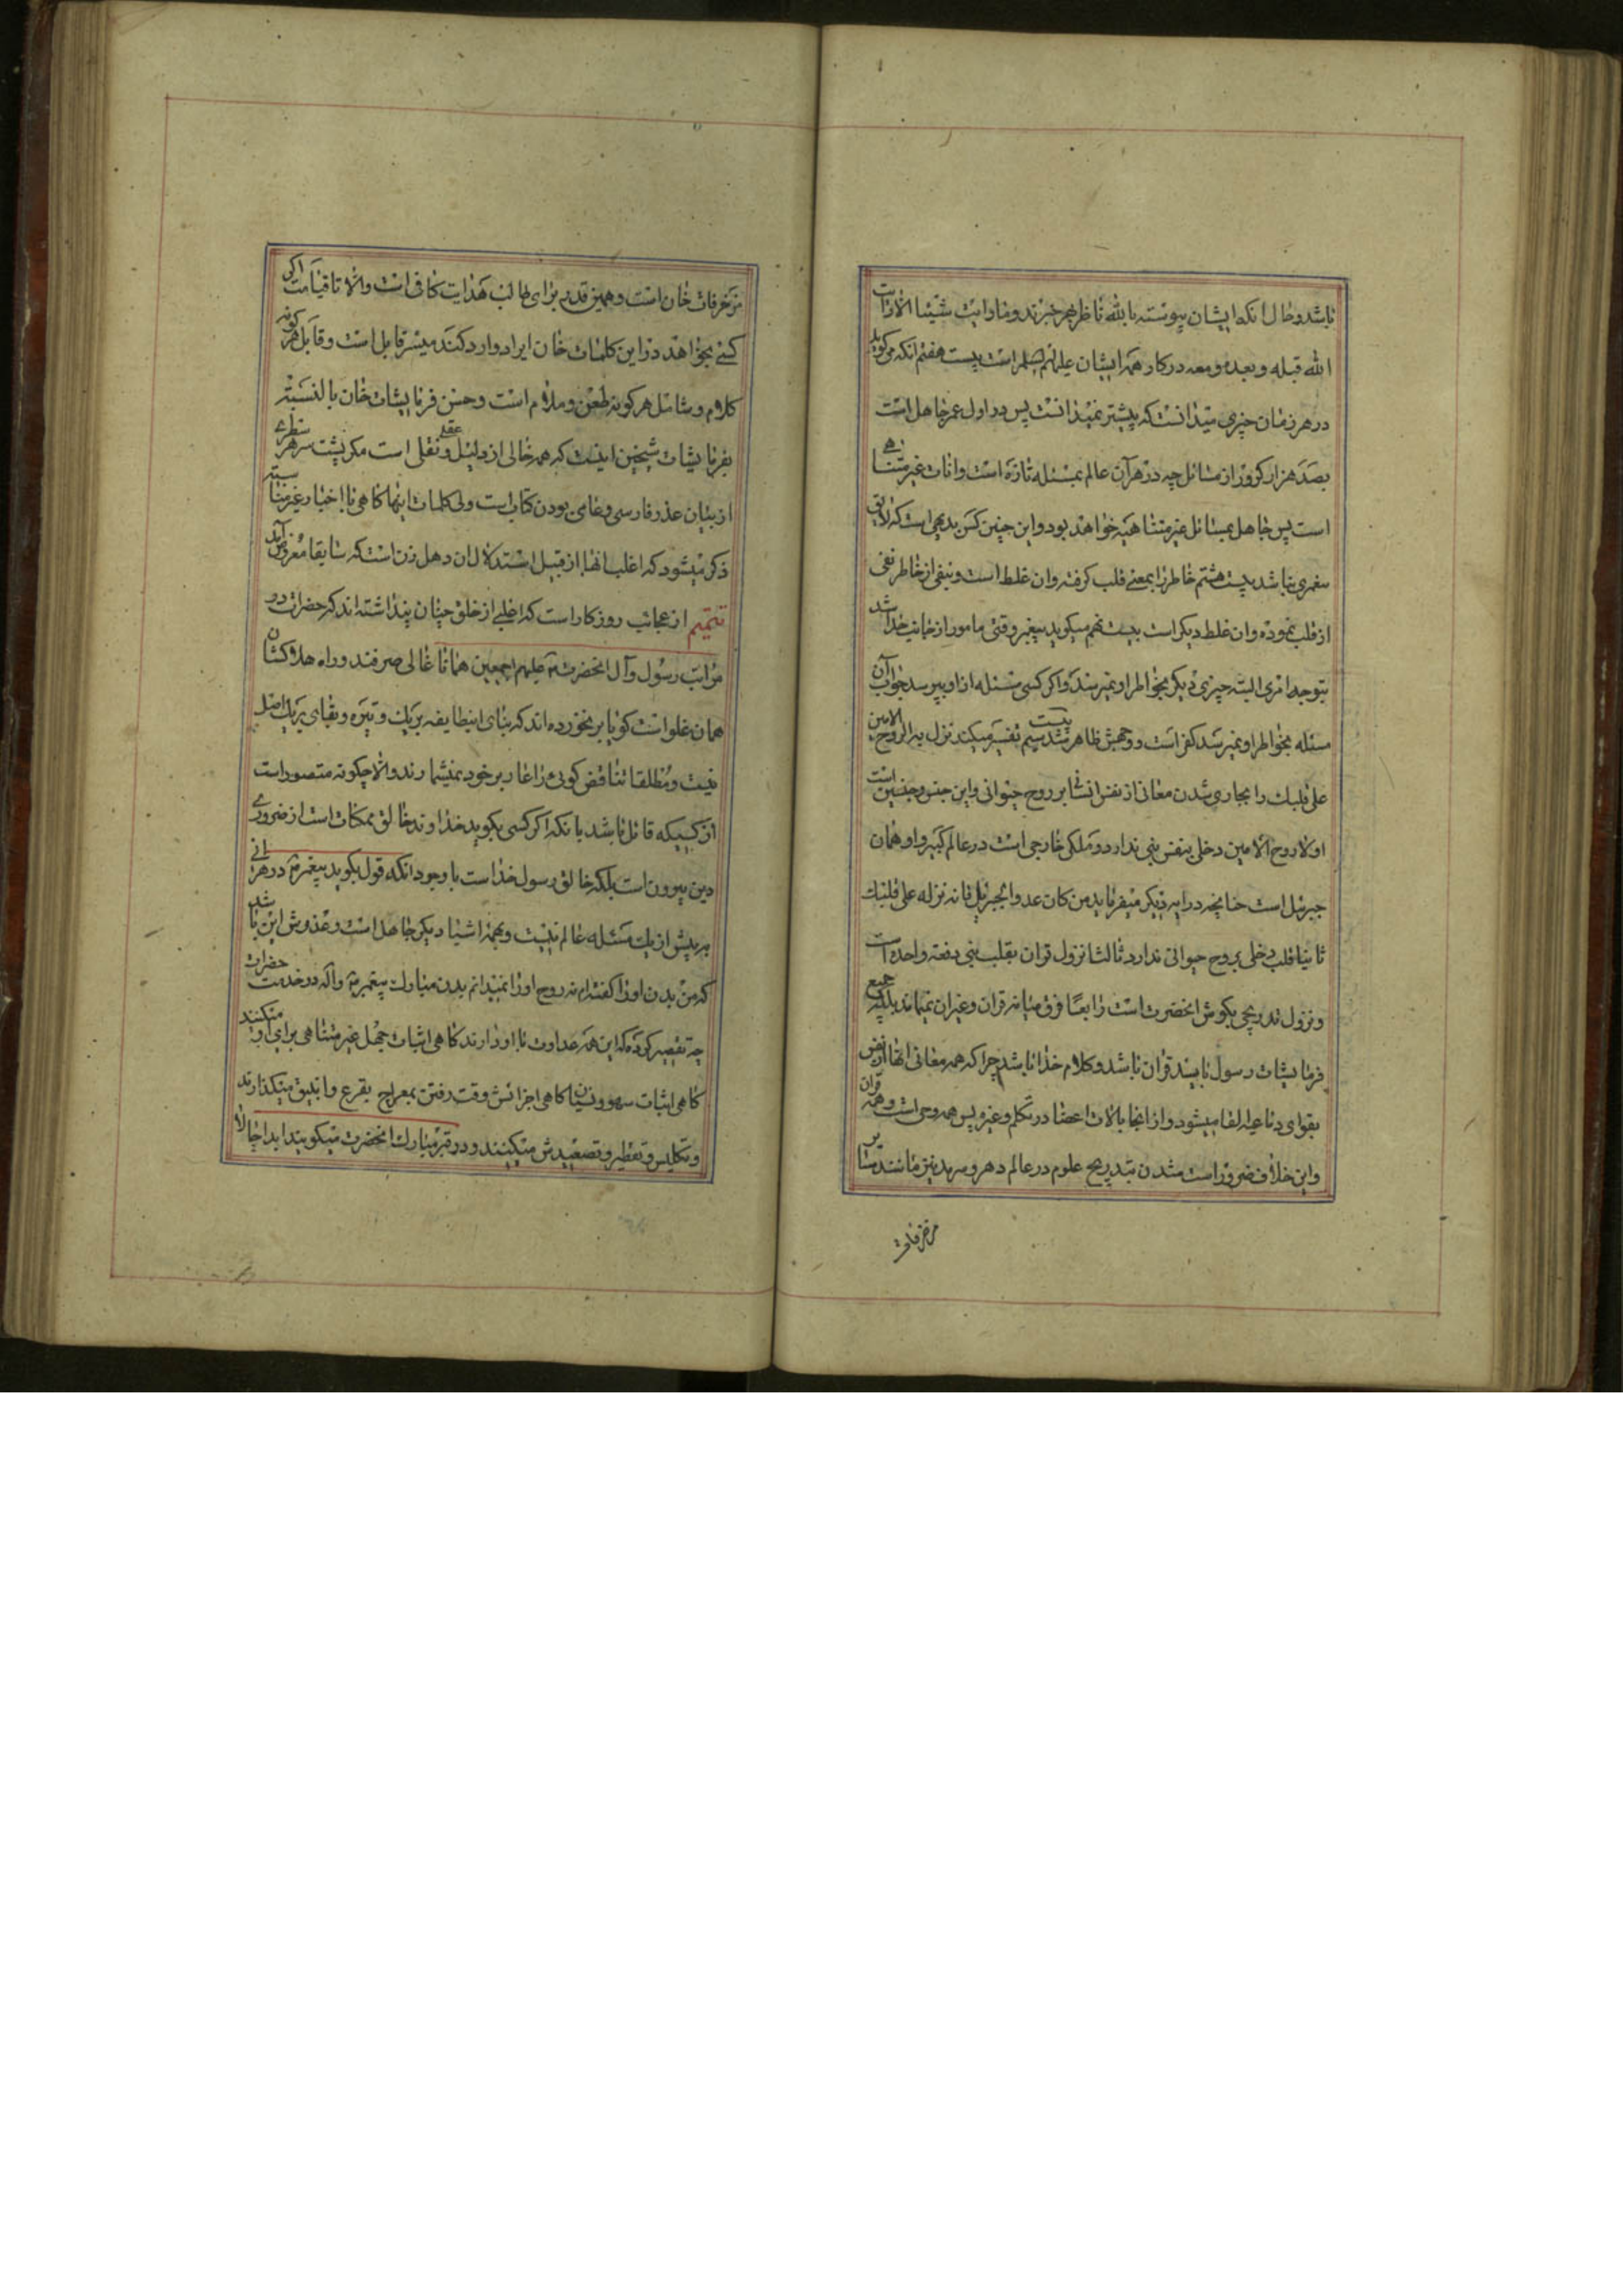 باشد و حال آنکه ایشان پیوسته بالله ناظر بهر چیزند و ما رایت شیئا الا و رایت
الله قبله و بعده و معه در کار همه ایشان علیهم السلام است بیست هفتم انکه می کوید
در هر زمان چیزی میدانست که پیشتر نمیدانست پس در اول عمر جاهل است
بصد هزار کرور از مسائل چه در هر آن عالم بمسئله تازه است و انات غیر متناهی
است پس جاهل بمسائل غیر متناهیه خواهد بود و این چنین کس بدیهی است که لایق
پیغمبری نباشد بیست هشتم خاطر را بمعنی قلب کرفته و ان غلط است و نیفی از خاطر نفی
از قلب نموده و ان غلط دیکر است بیست نهم میکوید پیغمبر وقتی مامور از جانب خدا شد
بتوجه امری البته چیزی دیکر بخواطر او نمیرسد و اکر کسی مسئله از او بپرسد جواب آن
مسئله بخواطر او نمیرسد کفر است و وجهش ظاهر شد سیم تفسیر میکند نزل به الروح الامین
علی قلبک را بجاری شدن معانی از نفس انسانی بر روح حیوانی و این جنس و چنین است
اولا روح الامین دخلی بنفس نبی ندارد و ملکی خارجی است در عالم کبیر و او همان
جبرئیل است چنانچه در ایه دیکر میفرماید من کان عدوا لجبریل فانه نزله علی قلبک
ثانیا قلب دخلی بروح حیوانی ندارد ثالثا نزول قران بقلب نبی دفعة واحده است
و نزول تدریجی بکوش انحضرت است رابعا فرق میانه قران و غیر ان نمیماند بلکه جمیع
فرمایشات رسول نباید قران باشد و کلام خدا باشد چرا که همه معانی انها از نفس
بقوای دماغیه القا میشود و از انجا بالات اعضا در تکلم و غیره پس همه وحی است و همه قران
و این خلاف ضرور است شدن بتدریج علوم در عالم دهر و سرمد نیز مانند سایر
مزخرفات
مزخرفات خان است و همین قدر برای طالب هدایت کافی است و الا تا قیامت اکر
کسی بخواهد در این کلمات خان ایراد وارد کند میسر قابل است و قابل هر کونه
کلام و شامل هر کونه طعن و ملام است و حسن فرمایشات خان بالنسبه
بفرمایشات شیخین اینست که همه خالی از دلیل عقلی و نقلی است مکر پشت سر هر سطری
از بیان عذر فارسی و عامی بودن کتاب است ولی کلمات اینها کاهی با اخبار غیر متناسبه
ذکر میشود که اغلب انها از قبیل استدلال ان دهل زن است که سابقا معروض آمد
تتمیم از عجائب روزکار است که اغلبی از خلق چنان پنداشته اند که حضرات در
مراتب رسول و آل انحضرت علیهم اجمعین همانا غالی صرفند و راه هلاکشان
همان غلو است کویا برنخورده اند که بنای اینطایفه بر یک وتیره و بقای بر یک اصل
نیست و مطلقا تناقض کوئی را عار بر خود نمیشمارند و الا چکونه متصور است
از کسیکه قائل باشد بانکه اکر کسی بکوید خداوند خالق ممکنات است از ضروری
دین بیرون است بلکه خالق رسول خداست با وجود انکه قول بکوید پیغمبر در هر انی
به پیش از یک مسئله عالم نیست و بهمه اشیا دیکر جاهل است و عذرش این باشد
که من بدن او را کفته ام نه روح او را نمیدانم بدن مبارک پیغمبر و اله در خدمت حضرات
چه تقصیر کرده که این همه عداوت با او دارند کاهی اثبات جهل غیر متناهی برای او میکنند
کاهی اثبات سهو و نسیان کاهی اجزائش وقت رفتن بمعراج بقرع و انبیق میکذارند
و تکلیس و تقطیر و تصعیدش میکنند و در قبر مبارک انحضرت میکویند ابدا حالا